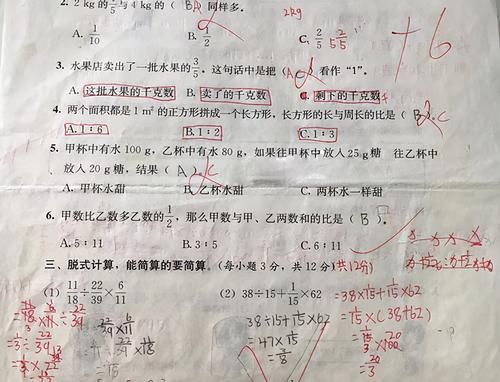 2. 2 kg 的 1/5 与 4 kg 的 ( B ) 同样多。
2kg
A. 1/10 B. 1/2 C. 2/5
+6
3. 水果店卖出了一批水果的3/5。这句话中是把 (A) 看作“1”。
A. 这批水果的千克数 B. 卖了的千克数 C. 剩下的千克数
4. 两个面积都是 1 m² 的正方形拼成一个长方形，长方形的长与周长的比是 ( B ) C
A. 1∶6 B. 1∶2 C. 1∶3
5. 甲杯中有水 100 g，乙杯中有水 80 g，如果往甲杯中放入 25 g 糖 往乙杯中
放入 20 g 糖，结果 ( A )
A. 甲杯水甜 B. 乙杯水甜 C. 两杯水一样甜
6. 甲数比乙数多乙数的1/2，那么甲数与甲、乙两数和的比是 ( B )
A. 5∶11 B. 3∶5 C. 6∶11
三、脱式计算，能简算的要简算。(每小题 3 分，共 12 分) (共12分)
(1) 11/18÷22/39×6/11 (2) 38÷15+1/15×62 =38×1/15+1/15×62
=1/15×(38+62)
38÷15+1/15×62
=1/15×100
=20/3